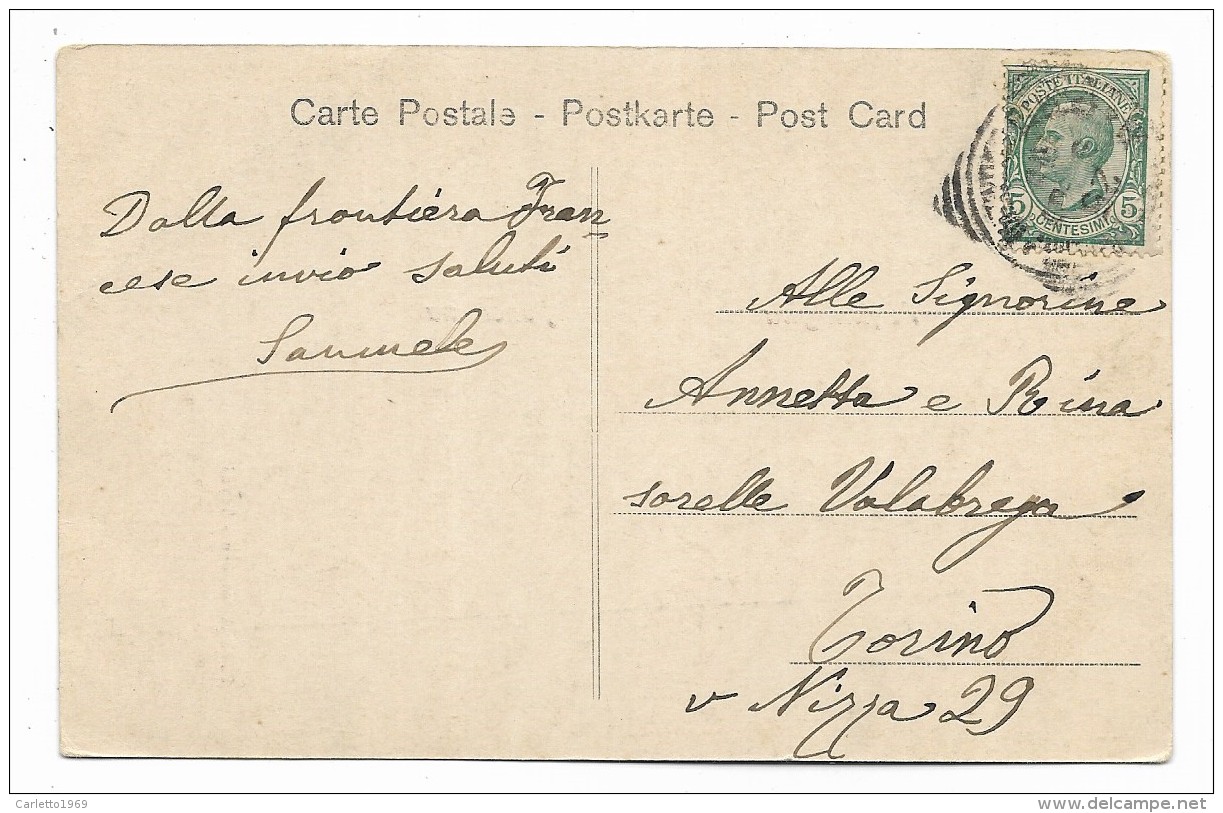 Carte Postale - Postkarte - Post Card
POSTE ITALIANE
5 5
CENTESIMI
Dalla frontiera Fran=
cese invio saluti
Alle Signorine
Annetta e Rina
sorelle Valabrega
Torino
v Nizza 29
Carletto1969
www.delcampe.net